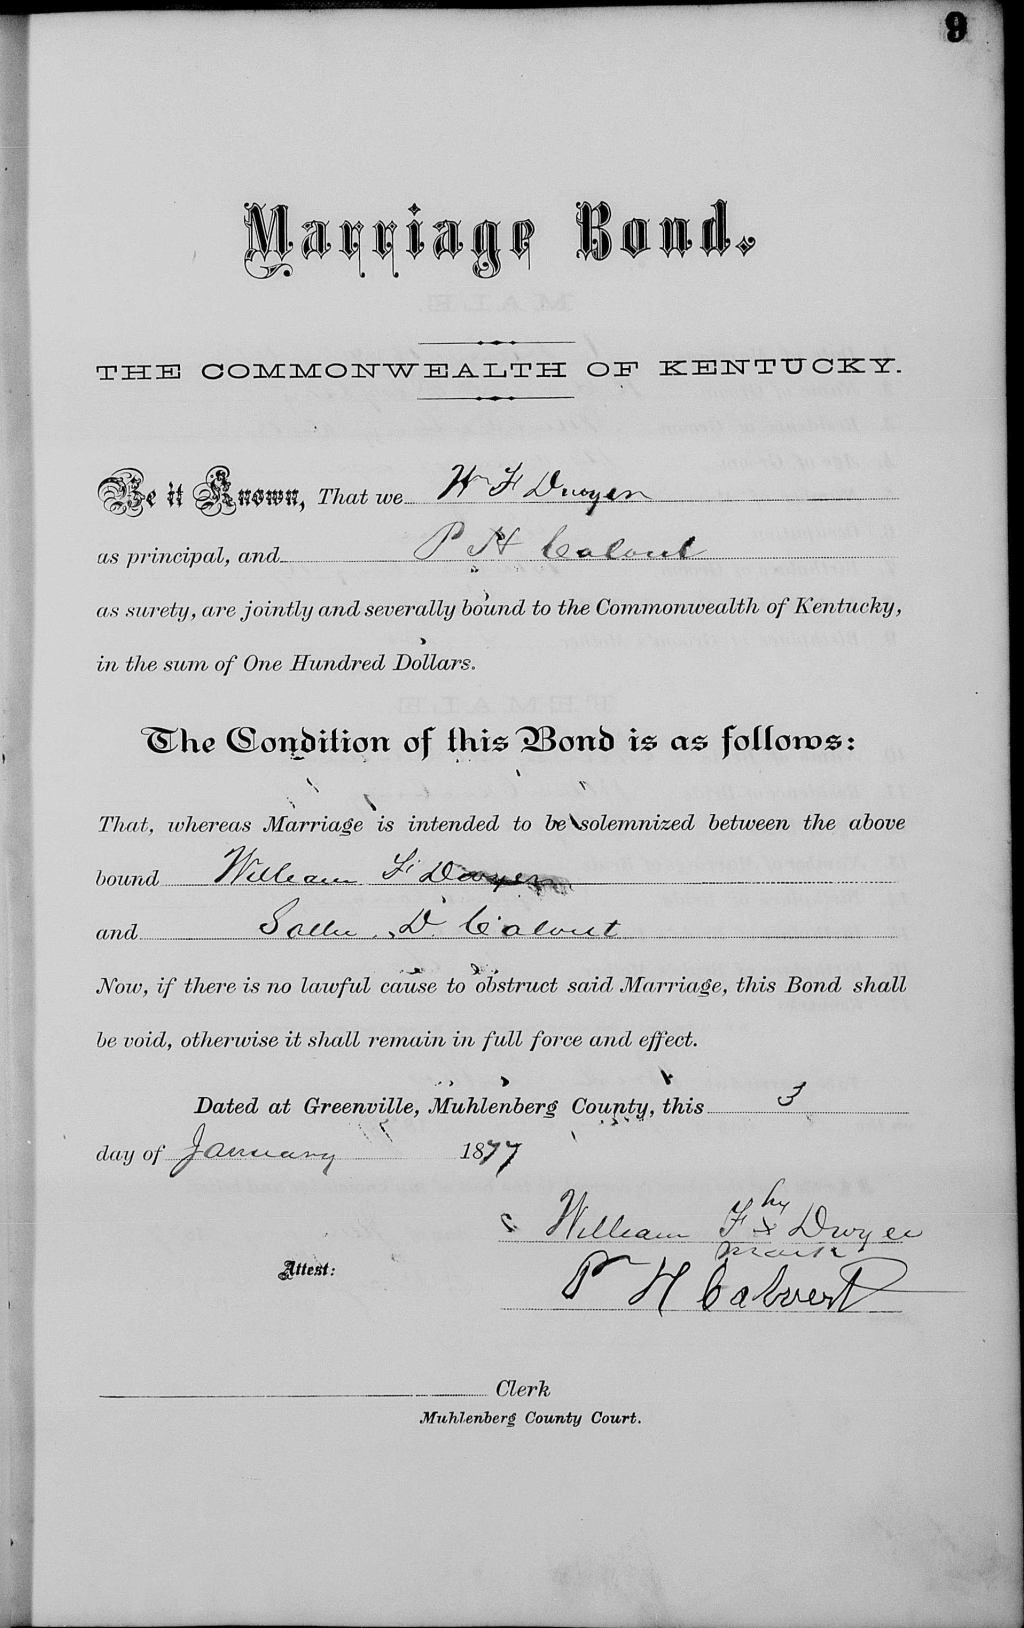 9
Marriage Bond.
THE COMMONWEALTH OF KENTUCKY.
Be it Known, That we Wm F Dwyer
as principal, and P H Calvert
as surety, are jointly and severally bound to the Commonwealth of Kentucky,
in the sum of One Hundred Dollars.
The Condition of this Bond is as follows:
That, whereas Marriage is intended to be solemnized between the above
bound William F Dwyer
and Sallie D. Calvert
Now, if there is no lawful cause to obstruct said Marriage, this Bond shall
be void, otherwise it shall remain in full force and effect.
Dated at Greenville, Muhlenberg County, this 3
day of January 1877
William F his x mark Dwyer
Attest:
P H Calvert
Clerk
Muhlenberg County Court.